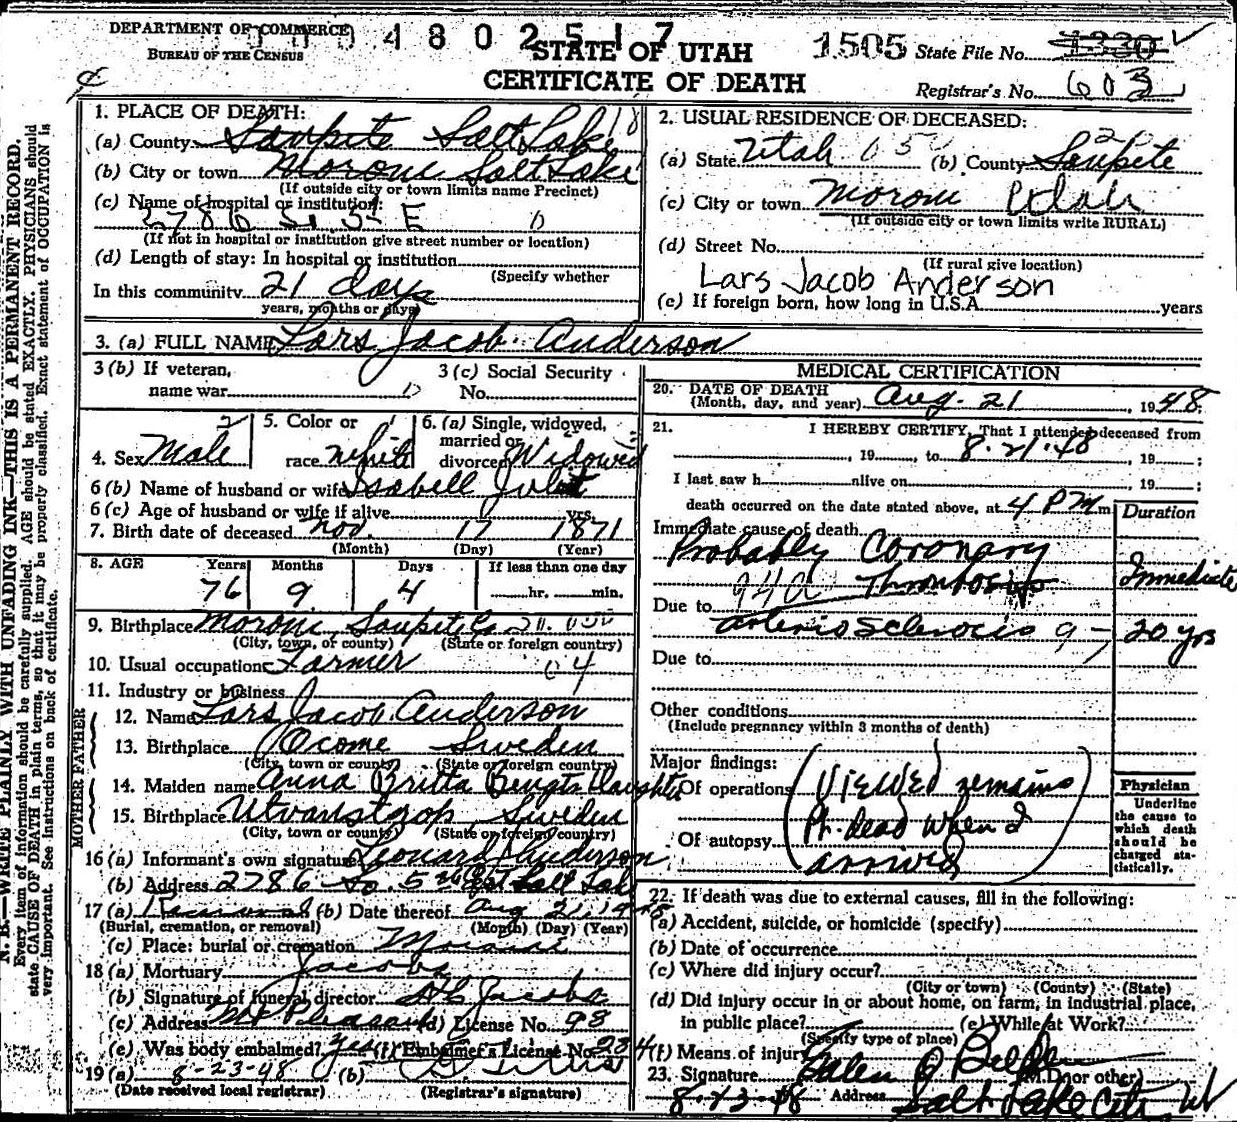 DEPARTMENT OF COMMERCE
BUREAU OF THE CENSUS
4802517
STATE OF UTAH
CERTIFICATE OF DEATH
1505 State File No. 1330
Registrar's No. 603
N. B.—WRITE PLAINLY WITH UNFADING INK—THIS IS A PERMANENT RECORD.
Every item of information should be carefully supplied. AGE should be stated EXACTLY. PHYSICIANS should
state CAUSE OF DEATH in plain terms, so that it may be properly classified. Exact statement of OCCUPATION is
very important. See instructions on back of certificate.
1. PLACE OF DEATH:
(a) County Sanpete Salt Lake 18
(b) City or town Moroni Salt Lake
(If outside city or town limits name Precinct)
(c) Name of hospital or institution:
2786 So. 5th E
(If not in hospital or institution give street number or location)
(d) Length of stay: In hospital or institution
(Specify whether
In this community 21 days
years, months or days)
2. USUAL RESIDENCE OF DECEASED:
(a) State Utah (b) County Sanpete
(c) City or town Moroni Utah
(If outside city or town limits write RURAL)
(d) Street No.
(If rural give location)
Lars Jacob Anderson
(e) If foreign born, how long in U.S.A. years
3. (a) FULL NAME Lars Jacob Anderson
3 (b) If veteran,
name war
3 (c) Social Security
No.
4. Sex Male
5. Color or
race white
6. (a) Single, widowed,
married or
divorced Widowed
6 (b) Name of husband or wife Isabell
6 (c) Age of husband or wife if alive yrs.
7. Birth date of deceased Nov. 17 1871
(Month) (Day) (Year)
8. AGE Years Months Days If less than one day
76 9 4 hr. min.
9. Birthplace Moroni Sanpete Co
(City, town, or county) (State or foreign country)
10. Usual occupation Farmer
11. Industry or business
FATHER
12. Name Lars Jacob Anderson
13. Birthplace Sweden
(City, town or county) (State or foreign country)
MOTHER
14. Maiden name Anna Britta Bengts Daughter
15. Birthplace Sweden
(City, town or county) (State or foreign country)
16 (a) Informant's own signature Leonard Anderson
(b) Address 2786 So. 5th East Salt Lake
17 (a) Removal (b) Date thereof Aug 21, 1948
(Burial, cremation, or removal) (Month) (Day) (Year)
(c) Place: burial or cremation Moroni
18 (a) Mortuary Jacobs
(b) Signature of funeral director Jacobs
(c) Address Mt Pleasant (d) License No. 98
(e) Was body embalmed? yes (f) Embalmer's License No. 284
19 (a) 8-23-48 (b)
(Date received local registrar) (Registrar's signature)
MEDICAL CERTIFICATION
20. DATE OF DEATH
(Month, day, and year) Aug. 21, 1948.
21. I HEREBY CERTIFY, That I attended deceased from
, 19 , to 8-21-48, 19 ;
I last saw h alive on , 19 ;
death occurred on the date stated above, at 4 P M m
Duration
Immediate cause of death
Probably Coronary
94a Thrombosis Immediate
Due to
arterio sclerosis 20 yrs
Due to
Other conditions
(Include pregnancy within 3 months of death)
Major findings:
Of operations
Of autopsy
(Viewed remains
Pt. dead when I
arrived)
Physician
Underline
the cause to
which death
should be
charged sta-
tistically.
22. If death was due to external causes, fill in the following:
(a) Accident, suicide, or homicide (specify)
(b) Date of occurrence
(c) Where did injury occur?
(City or town) (County) (State)
(d) Did injury occur in or about home, on farm, in industrial place,
in public place? (e) While at Work?
(Specify type of place)
(f) Means of injury
23. Signature Galen O Belden (M.D. or other)
8-23-48 Address Salt Lake City, Ut